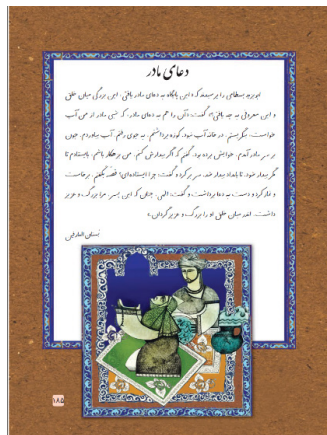 دعای مادر
بایزید بسطامی را پرسیدند که این پایگاه به دعای مادر یافتی، این بزرگی میان خلق
و این معروفی به چه یافتی؟ گفت: آن را هم به دعای مادر، که شبی مادر از من آب
خواست. بنگریستم، در خانه آب نبود. کوزه برداشتم، به جوی رفتم آب بیاوردم. چون
بر سر مادر آمدم، خوابش برده بود. گفتم که اگر بیدارش کنم، من بزهکار باشم. بایستادم تا
مگر بیدار شود. تا بامداد بیدار شد. سر بر کرد و گفت: چرا ایستاده‌ای؟ قصه بگفتم. برخاست
و نماز کرد و دست به دعا برداشت و گفت: الهی، چنان که این پسر، مرا بزرگ و عزیز
داشت، اندر میان خلق او را بزرگ و عزیز گردان.»
بستان العارفین
۱۸۵